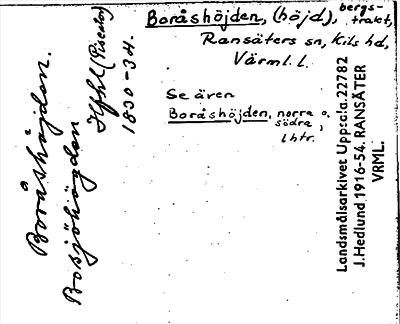 Boråshöjden, (höjd), bergs-
trakt,
Ransäters sn, Kils hd,
Värml. l.
Se även
Boråshöjden, norra o.
södra,
lhtr.
Boråshöjden.
Bosjöhögden
1830-34.
Landsmålsarkivet Upps:d:a. 22782
J. Hedlund 1916-54. RANSÄTER
VRML.